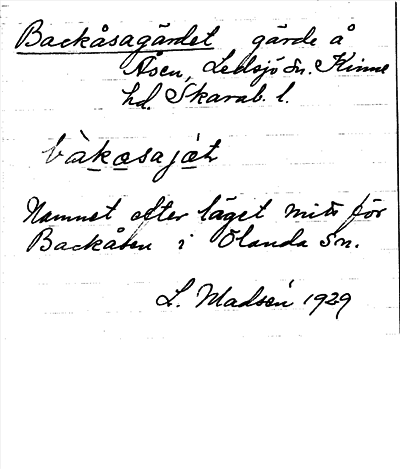 Backåsagärdet gärde å
Åsen, Ledsjö sn. Kinne
hd. Skarab. l.
bàkasajæt
Namnet efter läget mitt för
Backåsen i Ölanda sn.
L. Madsén 1929